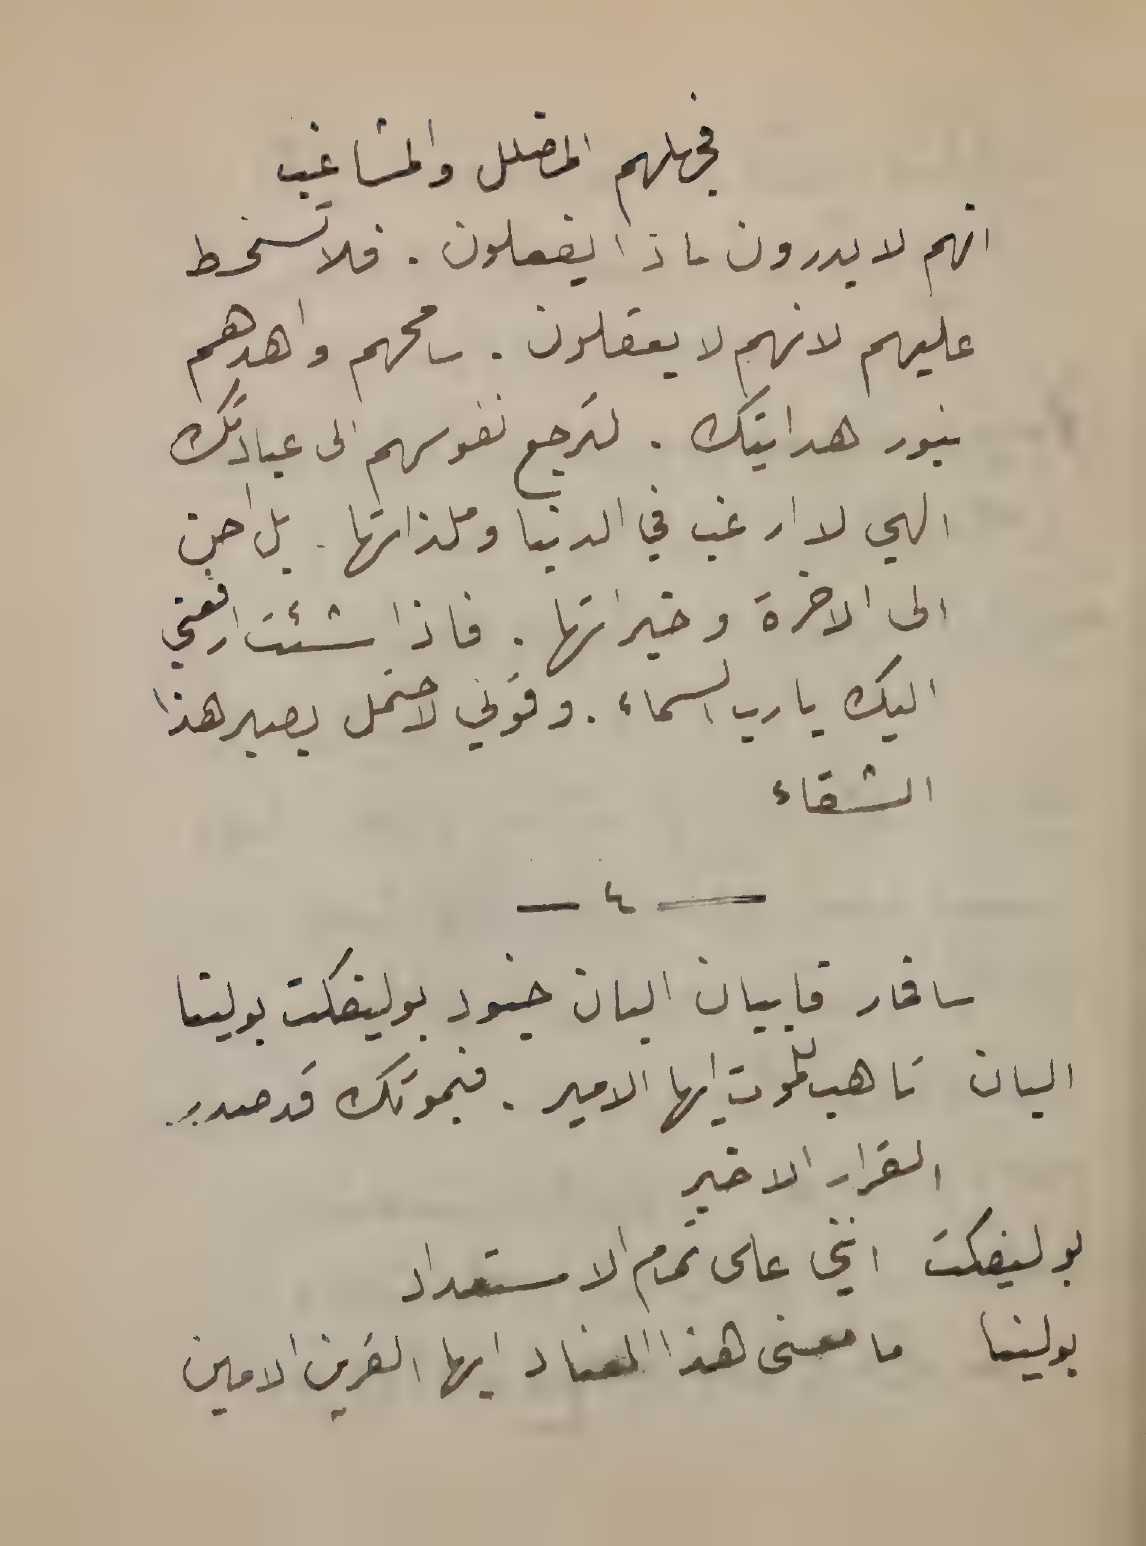 فجهلهم المضلل والمشاغب
انهم لا يدرون ماذا يفعلون . فلا تسخط
عليهم لانهم لا يعقلون . سامحهم واهدهم
بنور هدايتك . لترجع نفوسهم الى عبادتك
الهي لا ارغب في الدنيا وملذاتها . بل احن
الى الاخرة وخيراتها . فاذا شئت ارفعني
اليك يا رب السماء . وقوني لاحتمل بصبر هذا
الشقاء
— ٤ —
سافار فابيان البان جنود بوليفكت بولينا
البان تاهب للموت ايها الامير . فبموتك قد صدر
القرار الاخير
بوليفكت انني على تمام الاستعداد
بولينا ما معنى هذا العناد ايها القرين الامين